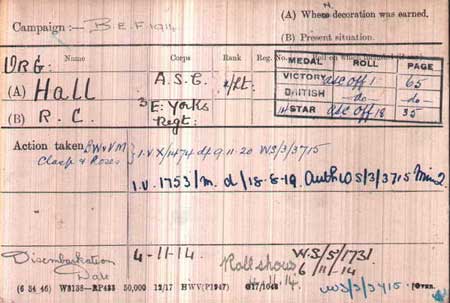 Campaign :— B.E.F. 1914
(A) Where decoration was earned.
(B) Present situation.
ORG: Name Corps Rank Reg. No.
MEDAL ROLL PAGE
VICTORY ASC Off 1 65
BRITISH do do
14 STAR ASC Off 18 35
(A) Hall A.S.C. 2/Lt.
(B) R.C. 3 E: Yorks Regt:
Action taken BW & VM
Clasp & Roses
I.V X/1474 d/ 9.11.20 WS/3/3715
I.V. 1753/M. d/18-8-19. Auth WS/3/3715 Min 2.
Disembarkation Date 4-11-14. Roll shows 6/11/14.
W.S/5/1731
6/11/14
(6 34 46) W8138—RP483 50,000 12/17 HWV(P1947) [OVER.
WS/3/3715.